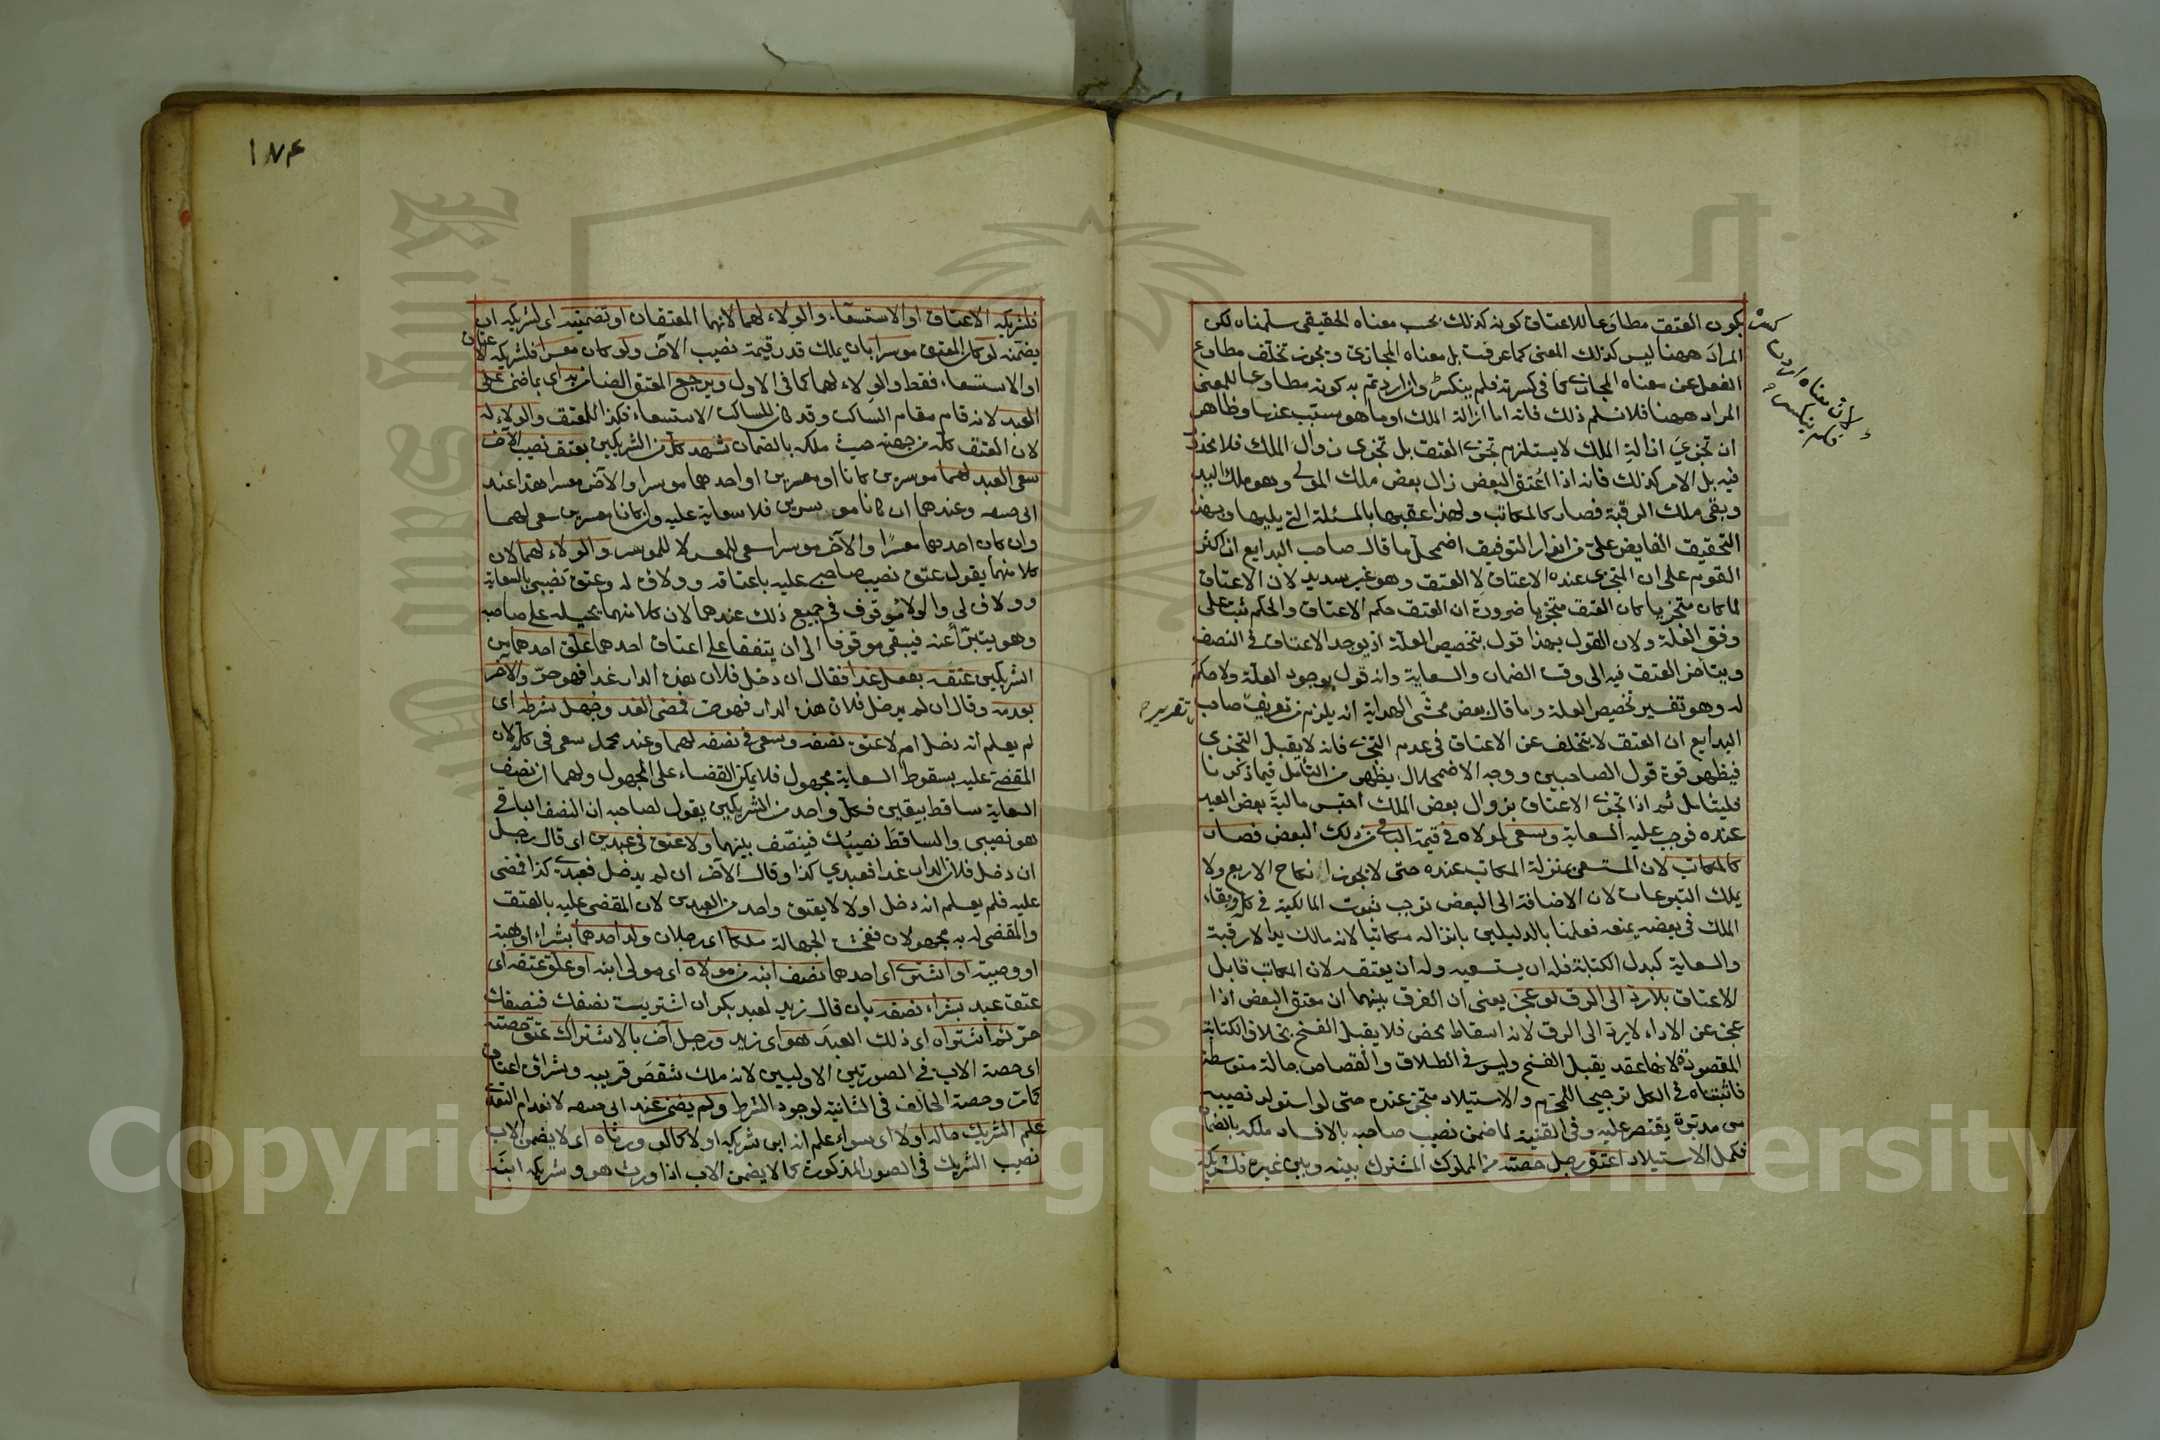 يكون العتق مطاوعا للاعتاق كونه كذلك بحسب معناه الحقيقي سلمناه لكن
المراد ههنا ليس كذلك المعنى كما عرفت بل معناه المجازي ويجوز تخلف مطاوع
الفعل عن معناه المجازي كما في كسرته فلم ينكسر وان اريد به كونه مطاوعا للمعنى
المراد ههنا فلا نسلم ذلك فانه اما ازالة الملك او ما هو مسبب عنها وظاهر
ان تجزي ازالة الملك لا يستلزم تجزي العتق بل تجزي زوال الملك فلا محذور
فيه بل الامر كذلك فانه اذا اعتق البعض زال بعض ملك المولى وهو ملك اليد
وبقي ملك الرقبة فصار كالمكاتب ولهذا عقبها بالمسئلة التي يليها وبهذا
التحقيق الفايض علي من انوار التوفيق اضمحل ما قال صاحب البدايع ان اكثر
القوم على ان المتجزي عنده الاعتاق لا العتق وهو غير سديد لان الاعتاق
لما كان متجزيا كان العتق متجزيا ضرورة ان العتق حكم الاعتاق والحكم ثبت على
وفق العلة ولان القول بهذا قول بتخصيص العلة اذ يوجد الاعتاق في النصف
ويتأخر العتق فيه الى وقت الضمان والسعاية وانه قول بوجود العلة ولا حكم
له وهو تفسير تخصيص العلة وما قال بعض محشي الهداية انه يلزم من تعريف صاحب
البدايع ان العتق لا يتخلف عن الاعتاق في عدم التجزي فانه لا يقبل التجزي
فيظهر قوة قول الصاحبين ووجه الاضمحلال يظهر من التأمل فيما ذكرنا
فليتأمل ثم اذا تجزي الاعتاق بزوال بعض الملك احتبس مالية بعض العبد
عنده فوجب عليه السعاية ويسعى لمولاه في قيمة الباقي من ذلك البعض فصار
كالمكاتب لان المستسعى بمنزلة المكاتب عنده حتى لا يجوز نكاح الاربع ولا
يملك التبرعات لان الاضافة الى البعض توجب ثبوت المالكية في كله وبقاء
الملك في بعضه يمنعه فعلمنا بالدليلين بانزاله مكاتبا لانه مالك يدا لا رقبة
والسعاية كبدل الكتابة فله ان يستسعيه وله ان يعتقه لان المكاتب قابل
الاعتاق بلا رد الى الرق لو عجز يعني ان الفرق بينهما ان معتق البعض اذا
عجز عن الاداء لا يرد الى الرق لانه اسقاط محض فلا يقبل الفسخ بخلاف الكتابة
المقصودة لانها عقد يقبل الفسخ وليس في الطلاق والقصاص حالة متوسطة
فاثبتناه في الكل ترجيحا للمحرم والاستيلاد متجز عنده حتى لو استولد نصيبه
من مدبرة يقتصر عليه وفي القنية لما ضمن نصيب صاحبه بالافساد ملكه بالضمان
فكمل الاستيلاد اعتق رجل حصته من المملوك المشترك بينه وبين غيره فلشريكه
تقرير
فلشريكه الاعتاق او الاستسعاء والولاء لهما لانهما المعتقان او تضمينه اي لشريكه ان
يضمنه لو كان المعتق موسرا بان يملك قدر قيمة نصيب الآخر ولو كان معسرا فلشريكه الاعتاق
او الاستسعاء فقط والولاء لهما كما في الاول ويرجع المعتق الضامن به اي بما ضمن على
العبد لانه قام مقام الساكت وقد كان للساكت الاستسعاء فكذا للمعتق والولاء له
لان العتق كله من جهته حيث ملكه بالضمان شهد كل من الشريكين بعتق نصيب الآخر
سعى العبد لهما موسرين كانا او معسرين او احدهما موسرا والآخر معسرا هذا عند
ابي حنيفه وعندهما ان كانا موسرين فلا سعاية عليه وان كانا معسرين سعى لهما
وان كان احدهما معسرا والآخر موسرا سعى للمعسر لا للموسر والولاء لهما لان
كلا منهما يقول عتق نصيب صاحبي عليه باعتاقه وولاؤه له وعتق نصيبي بالسعاية
وولاؤه لي والولاء موقوف في جميع ذلك عندهما لان كلا منهما يحيله على صاحبه
وهو يتبرأ عنه فيبقى موقوفا الى ان يتفقا على اعتاق احدهما علق احدهما من
الشريكين عتقه بفعل غدا فقال ان دخل فلان هذه الدار غدا فهو حر والآخر
بعدمه وقال ان لم يدخل فلان هذه الدار فهو حر فمضى الغد وجهل شرطه اي
لم يعلم انه دخل ام لا عتق نصفه وسعى في نصفه لهما وعند محمد سعى في كله لان
المقضي عليه بسقوط السعاية مجهول فلا يمكن القضاء على المجهول ولهما ان نصف
السعاية ساقط بيقين فكل واحد من الشريكين يقول لصاحبه ان النصف الباقي
هو نصيبي والساقط نصيبك فينتصف بينهما ولا عتق في عبدين اي قال رجل
ان دخل فلان الدار غدا فعبدي كذا وقال الآخر ان لم يدخل فعبدي كذا فمضى
عليه فلم يعلم انه دخل اولا لا يعتق واحد من العبدين لان المقضي عليه بالعتق
والمقضى له به مجهولان ففحشت الجهالة ملكا اي رجلان ولد احدهما بشراء او هبة
او وصية او اشترى اي احدهما نصف ابنه من مولاه اي مولى ابنه او علق عتقه اي
عتق عبد بشراء نصفه بان قال زيد لعبد بكر ان اشتريت نصفك فنصفك
حر ثم اشتراه اي ذلك العبد هو اي زيد ورجل آخر بالاشتراك عتق حصته
اي حصة الاب في الصورتين الاوليين لانه ملك شقص قريبه وشراؤه اعتاق
كما مر وحصة الحالف في الثانية لوجود الشرط ولم يضمن عند ابي حنيفه لانعدام التعدي
علم الشريك حاله او لا اي سواء علم انه ابن شريكه او لا كما لو ورثاه اي لا يضمن الاب
نصيب الشريك في الصور المذكورة كما لا يضمن الاب اذا ورث هو وشريكه ابنه
١٨٤
Copyright © King Saud University
King Saud University
1957